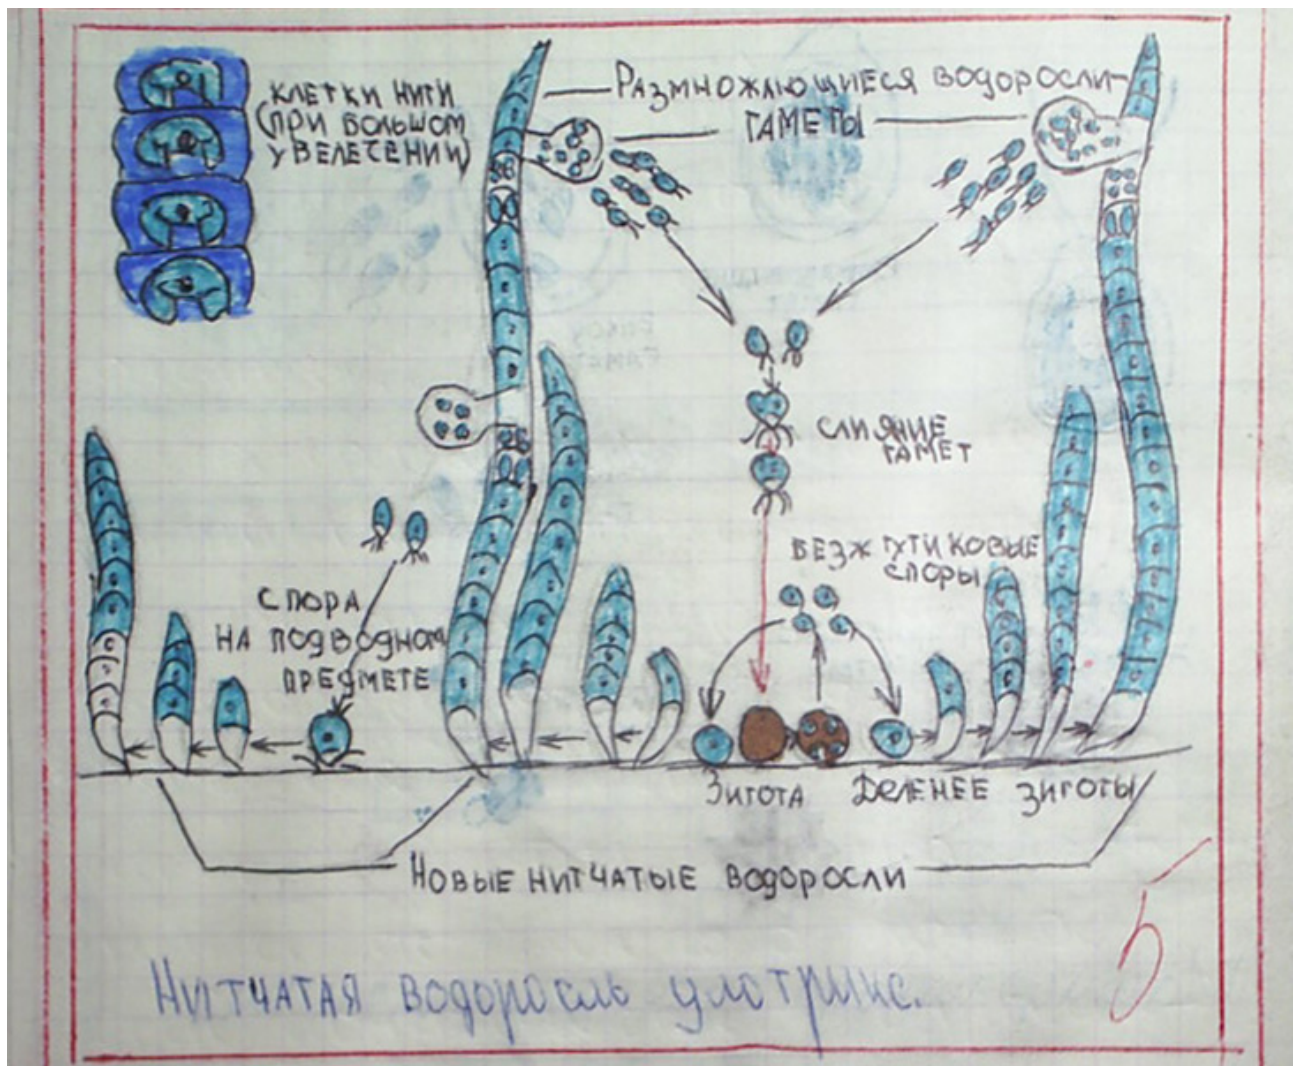 КЛЕТКИ НИТИ
(ПРИ БОЛЬШОМ
УВЕЛЕЧЕНИИ)
РАЗМНОЖАЮЩИЕСЯ ВОДОРОСЛИ
ГАМЕТЫ
СЛИЯНИЕ
ГАМЕТ
БЕЗЖГУТИКОВЫЕ
СПОРЫ
СПОРА
НА ПОДВОДНОМ
ПРЕДМЕТЕ
ЗИГОТА
ДЕЛЕНЕЕ ЗИГОТЫ
НОВЫЕ НИТЧАТЫЕ ВОДОРОСЛИ
5
Нитчатая водоросль улотрикс.